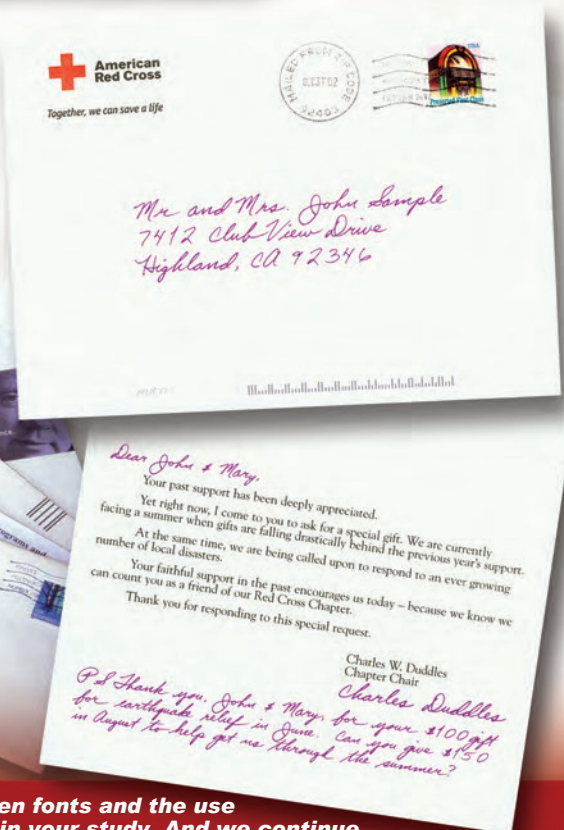 American
Red Cross
Together, we can save a life
MAILED FROM ZIP CODE
USA
Mr and Mrs. John Sample
7412 Club View Drive
Highland, CA 92346
Dear John & Mary,
Your past support has been deeply appreciated.
Yet right now, I come to you to ask for a special gift. We are currently
facing a summer when gifts are falling drastically behind the previous year's support.
At the same time, we are being called upon to respond to an ever growing
number of local disasters.
Your faithful support in the past encourages us today – because we know we
can count you as a friend of our Red Cross Chapter.
Thank you for responding to this special request.
Charles W. Duddles
Chapter Chair
Charles Duddles
PS Thank you, John & Mary, for your $100 gift
for earthquake relief in June. Can you give $150
in August to help get us through the summer?
programs and
en fonts and the use
in your study. And we continue